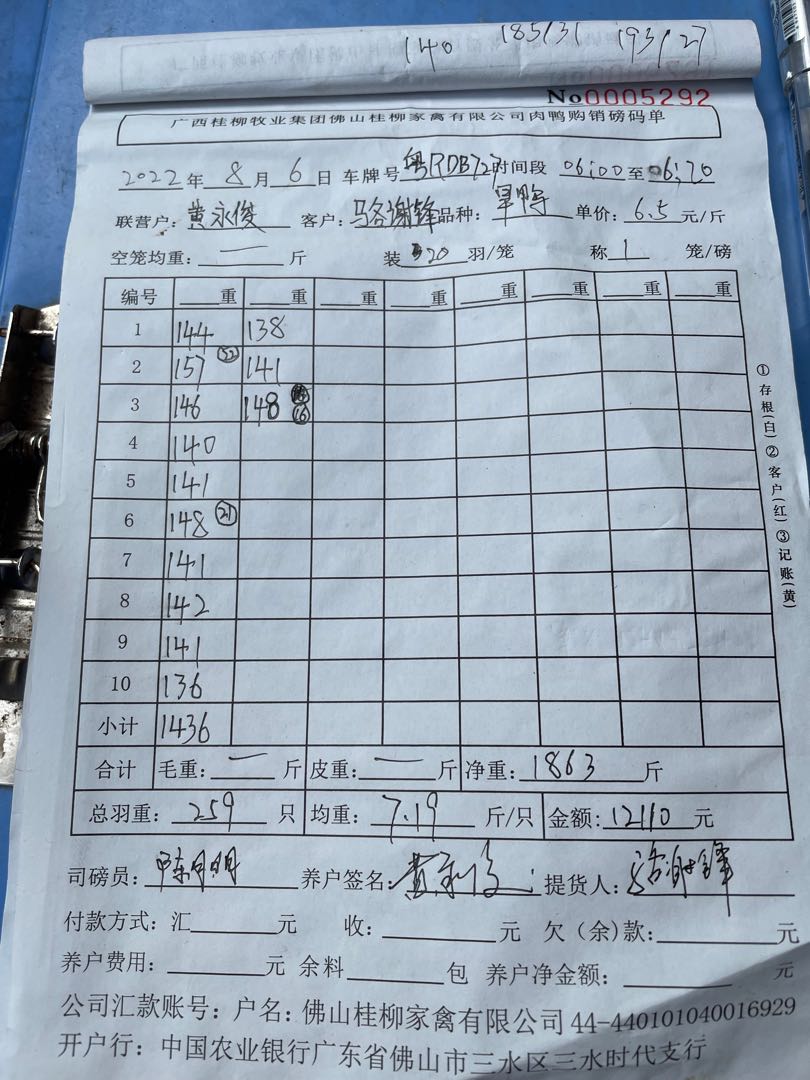 140 185/31 193/27
No0005292
广西桂柳牧业集团佛山桂柳家禽有限公司肉鸭购销磅码单
2022年 8月 6日 车牌号 粤RDB727 时间段 06:00至06:20
联营户: 黄永俊 客户: 品种: 单价: 6.5 元/斤
空笼均重: 一 斤 装 20 羽/笼 称 1 笼/磅
编号 重 重 重 重 重 重 重 重
1 144 138
2 157 22 141
3 146 148 16
4 140
5 141
6 148 21
7 141
8 142
9 141
10 136
小计 1436
合计 毛重: 一 斤 皮重: 一 斤 净重: 1863 斤
总羽重: 259 只 均重: 7.19 斤/只 金额: 12110 元
司磅员: 养户签名: 提货人:
付款方式: 汇 元 收: 元 欠(余)款: 元
养户费用: 元 余料 包 养户净金额: 元
公司汇款账号: 户名: 佛山桂柳家禽有限公司 44-440101040016929
开户行: 中国农业银行广东省佛山市三水区三水时代支行
①存根(白)②客户(红)③记账(黄)